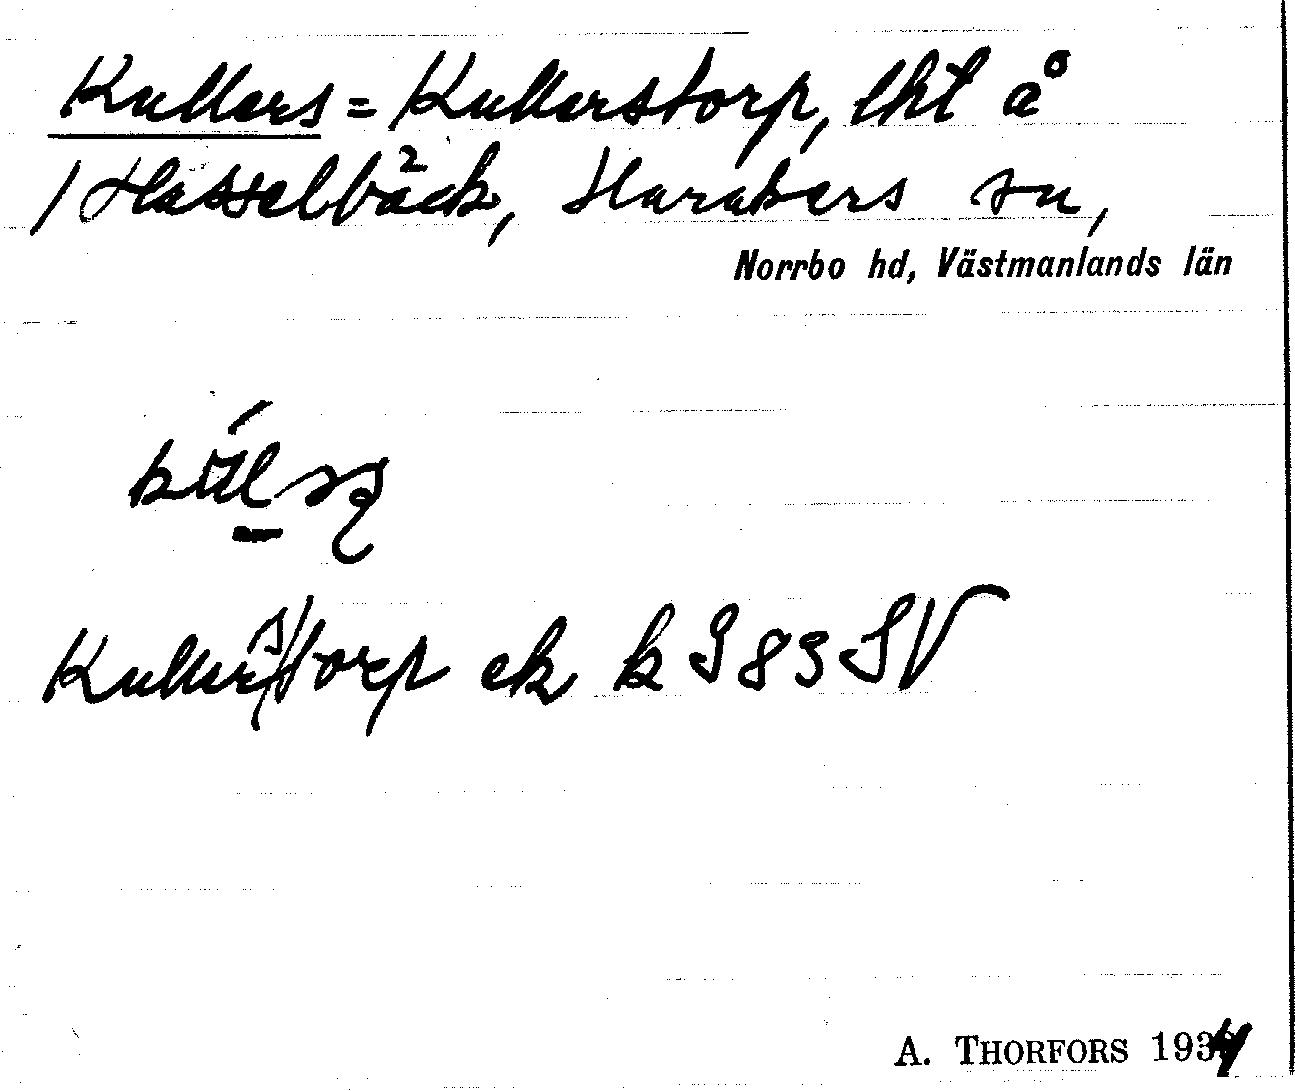 Kullers = Kullerstorp, lht å
/Hasselbäck, Harakers sn,
Norrbo hd, Västmanlands län
Kullerstorp ek k I 83 SV
A. THORFORS 1934